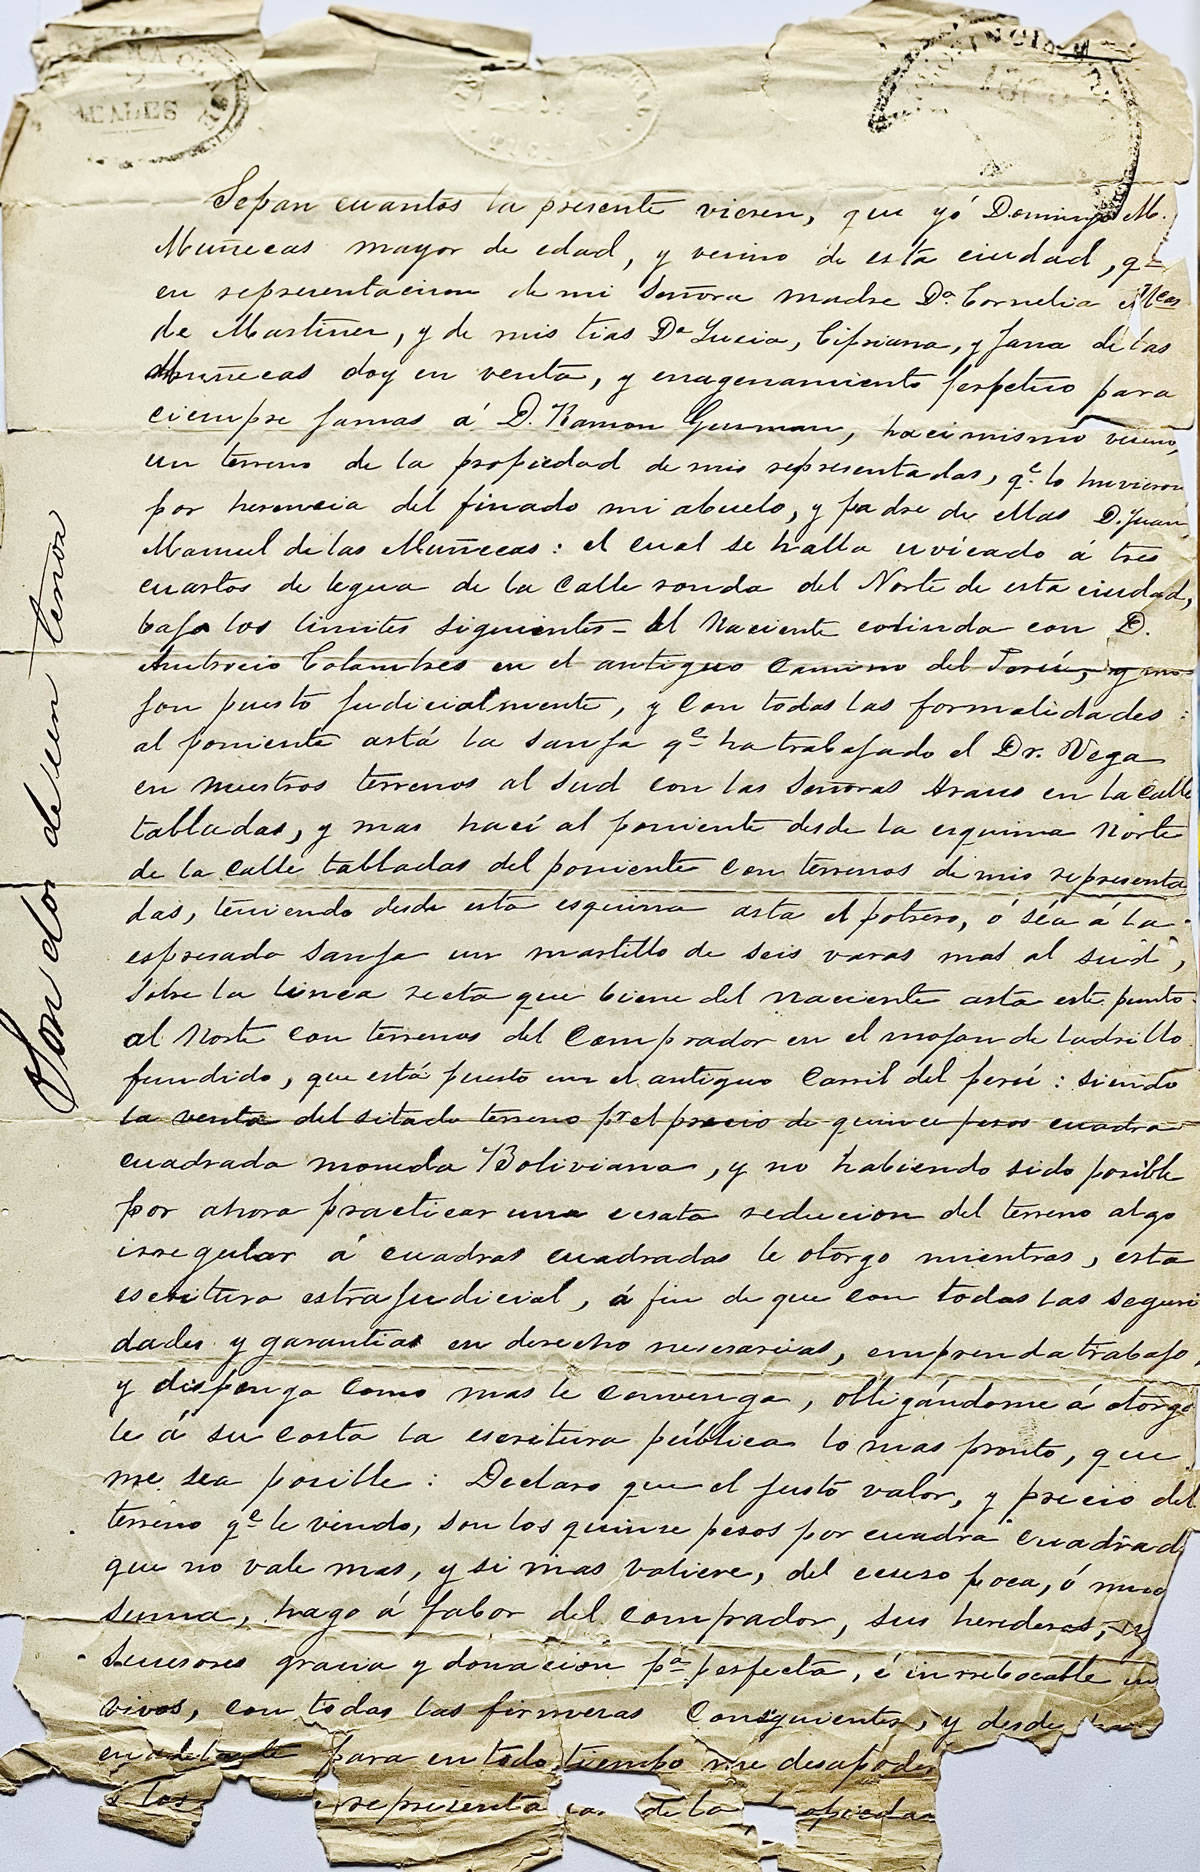 Sepan cuantos la presente vieren, que yó Domingo M.
Muñecas mayor de edad, y vecino de esta ciudad, qe
en representacion de mi Señora madre Da. Cornelia Mcas
de Martinez, y de mis tias Da Lucia, Cipriana, y Juna de las
Muñecas doy en venta, y enagenamiento perpetuo para
ciempre jamas á D. Ramon Gusman, hacimismo vecino,
un terreno de la propiedad de mis representadas, qe. lo huvieron
por herencia del finado mi abuelo, y padre de ellas D. Juan
Manuel de las Muñecas: el cual se halla uvicado á tres
cuartos de legua de la Calle ronda del Norte de esta ciudad,
bajo los limites siguientes - Al Naciente colinda con D.
Ambrocio Colambres en el antiguo camino del Perú, y mo
jon puesto judicialmente, y con todas las formalidades:
al poniente está la sanja qe ha trabajado el Dr. Vega
en nuestros terrenos al sud con las Señoras Araus en la Calle
tabladas, y mas hací al poniente desde la esquina Norte
de la calle tabladas del poniente con terrenos de mis representa
das, teniendo desde esta esquina asta el potrero, ó séa á la
espresada sanja un martillo de seis varas mas al sud,
sobre la linea recta que biene del naciente asta este punto
al Norte con terrenos del Comprador en el mojon de ladrillo
fundido, que está puesto en el antiguo Carril del perú: siendo
la venta del sitado terreno pr el precio de quince pesos cuadra
cuadrada moneda Boliviana, y no habiendo sido posible
por ahora practicar una esata reducion del terreno algo
irregular á cuadras cuadradas le otorgo mientras, esta
escritura estrajudicial, á fin de que con todas las seguri
dades y garantias en derecho nesesarias, emprenda trabajo,
y dispenga como mas le convenga, obligándome á otorga
le á su costa la escritura pública lo mas pronto, que
me sea posible: Declaro que el justo valor, y precio del
terreno qe le vendo, son los quinse pesos por cuadra cuadrad
que no vale mas, y si mas valiere, del eceso poca, ó muc
suma, hago á fabor del comprador, sus herederos, y
sucesores gracia y donación pa perfecta, é inrrebocable en
vivos, con todas las firmesas Consiguientes, y desde
en adelante para en todo tiempo me desapoder
a las representa de la
Son dos de un tenor